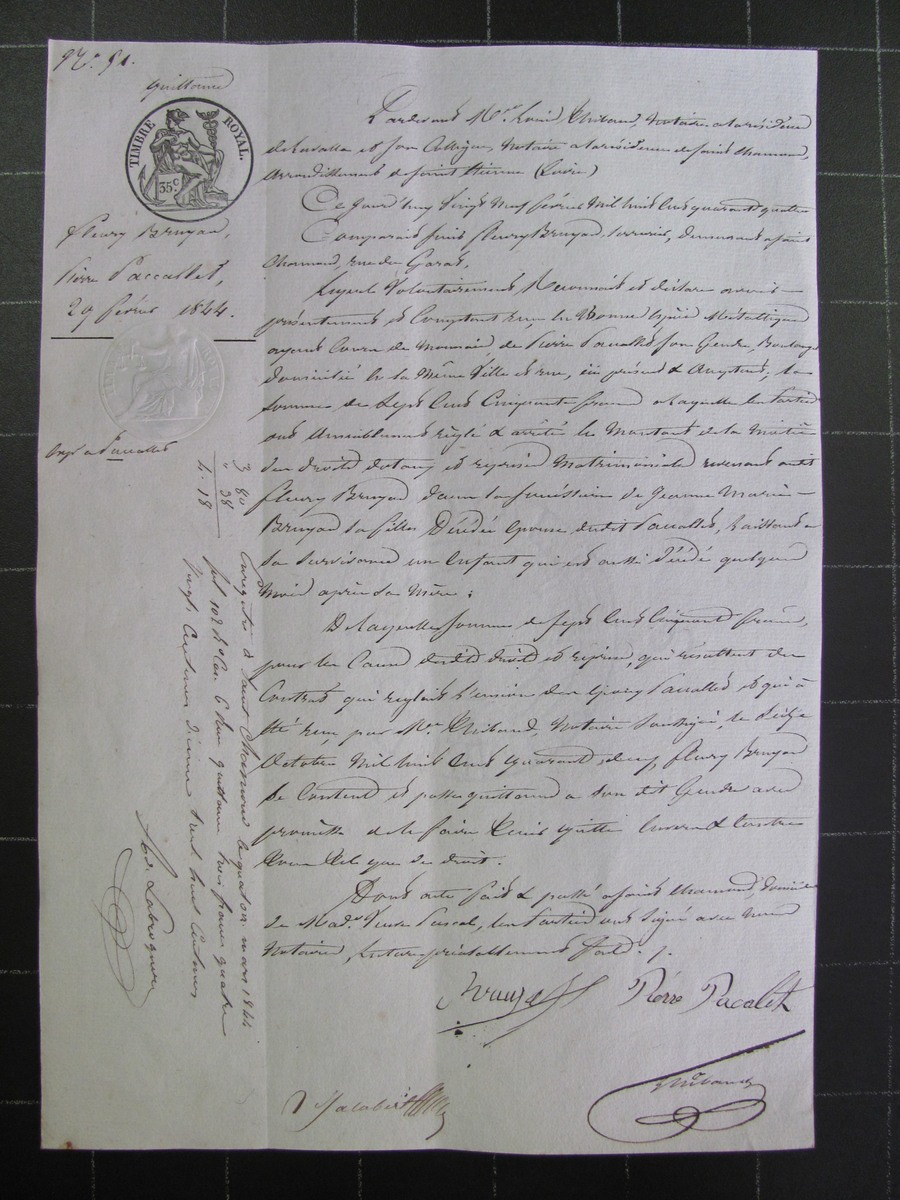 N.° 91.
quittance
TIMBRE ROYAL.
35 c
fleury Bruyas,
Pierre Paccallet,
29 février 1844.
Pardevant M.e Louis Thibaud, Notaire a la résidence
de Lavalla et son Collègue, Notaire a la résidence de saint chamond,
arrondissement de saint Etienne (Loire)
Ce Jourd'huy Vingt neuf février Mil huit Cent quarante quatre
Comparait sieur fleury Bruyas, serrurier, demeurant a saint
chamond, rue du Garat,
Lequel Volontairement Reconnait et déclare avoir
présentement et Comptant reçu en Bonnes Espèces Métalliques
ayant Cours de Monnaie, de Pierre Paccallet son Gendre, Boulanger
domicilié en la Même Ville et rue, ici présent & acceptant, la
somme de Sept Cent Cinquante francs a laquelle les Parties
ont amiablement règlé & arrêté le Montant de la Moitié
des droits dotaux et reprises Matrimoniales revenant audit
fleury Bruyas dans la succession de Jeanne Marie
Bruyas sa fille Décédée épouse dudit Paccallet, Laissant a
sa survivance un Enfant qui est aussi Décédé quelques
Mois après sa Mère ;
De laquelle somme de sept Cent Cinquante francs,
pour les Causes desdits droits et reprises, qui résultent du
Contrat qui reglait l'union des époux Paccallet et qui a
été reçu par M.e Thibaud, Notaire soussigné, le seize
Octobre Mil huit Cent quarante deux, fleury Bruyas
se Contente et passe quittance a son dit Gendre avec
promesse de le faire tenir quitte Envers & Contre
tous tels que de droit.
Dont acte fait & passé a saint chamond, domicile
de Mad.e Veuve Pascal, les Parties ont signé avec Nous
Notaires, lecture préalablement faite. /.
Bruyas
Pierre Pacalet
Thibaud
Jalabert
Exp. a Paccallet
3 80
38
4. 18
Enregistré à Saint Chamond le quatre mars 1844
fol 102 R.o Case 6 Reçu quittance trois francs quatre
vingts Centimes Dixieme trente huit Centimes